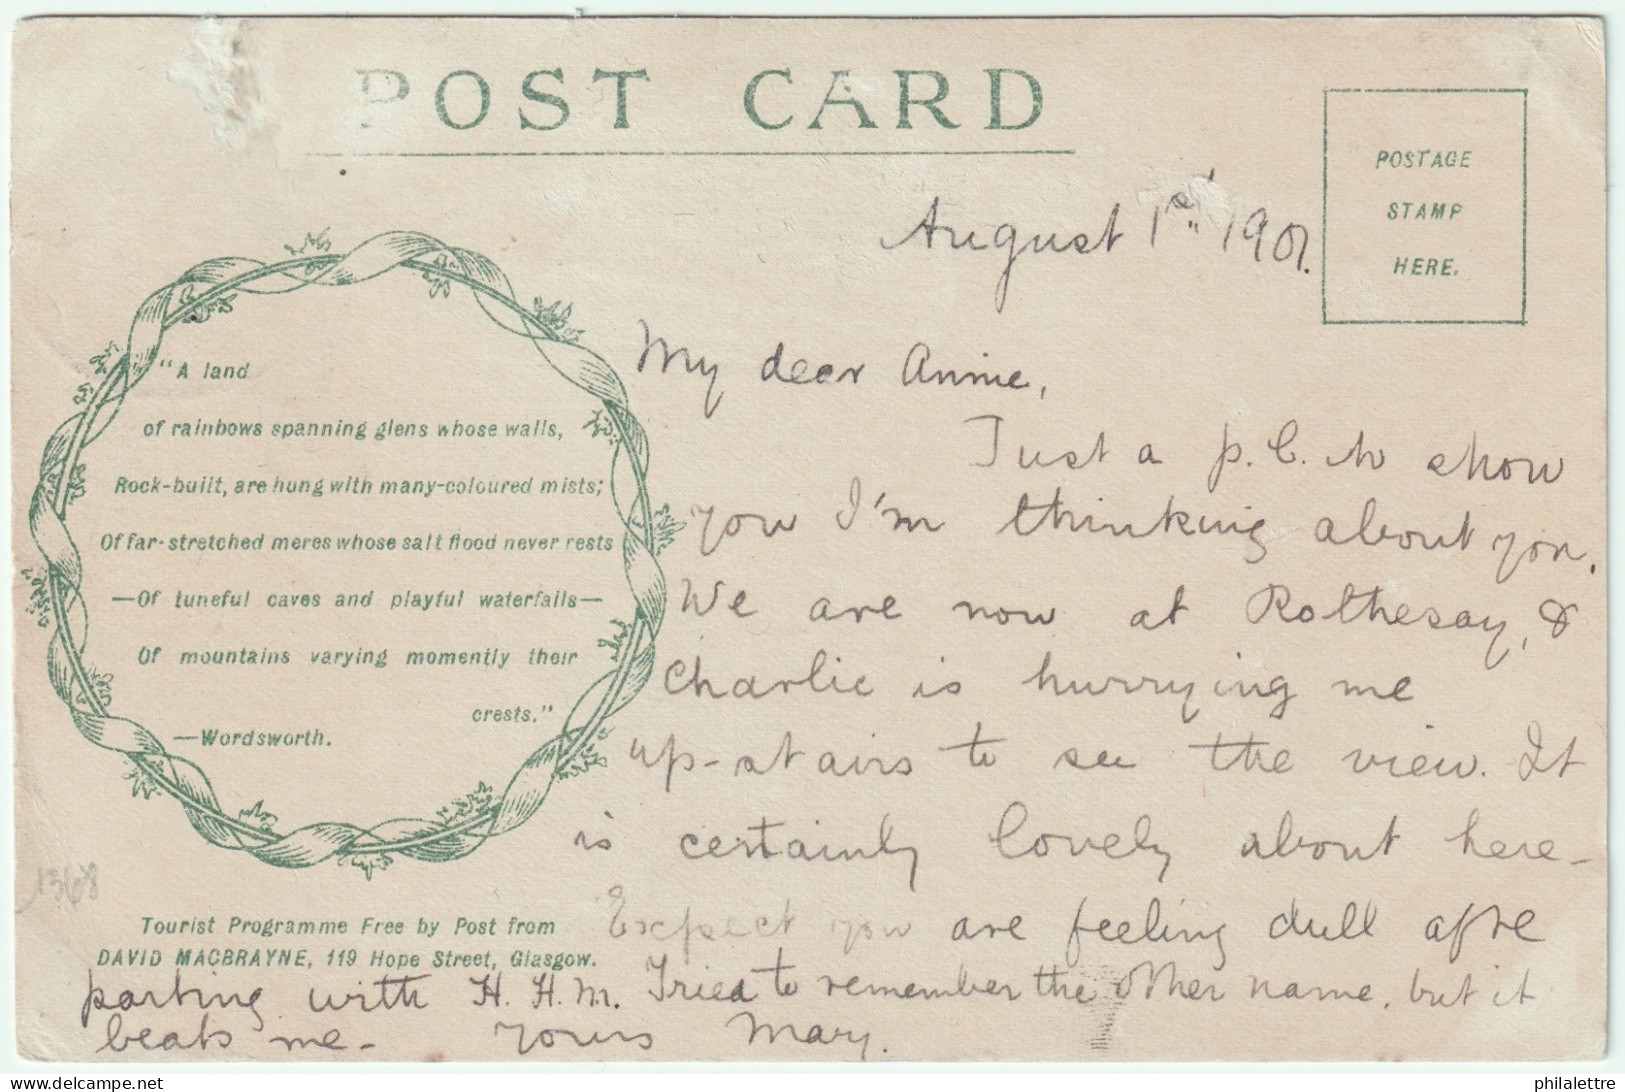 POST CARD
POSTAGE
STAMP
HERE.
August 1st 1901.
"A land
of rainbows spanning glens whose walls,
Rock-built, are hung with many-coloured mists;
Of far-stretched meres whose salt flood never rests
—Of tuneful caves and playful waterfalls—
Of mountains varying momently their
crests."
—Wordsworth.
My dear Annie,
Just a p.C. to show
you I'm thinking about you.
We are now at Rothesay, &
Charlie is hurrying me
up-stairs to see the view. It
is certainly lovely about here-
Expect you are feeling dull aftre
parting with H. H. M. Tried to remember the other name, but it
beats me- Yours Mary.
1368
Tourist Programme Free by Post from
DAVID MACBRAYNE, 119 Hope Street, Glasgow.
philalettre